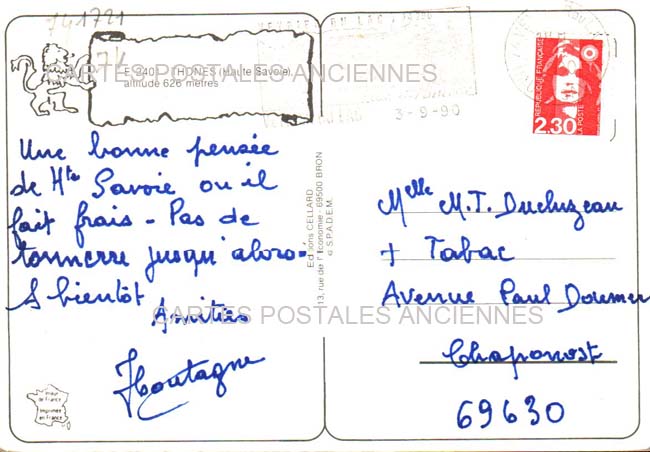 1721
74
E 240 - THONES (Haute Savoie),
altitude 626 mètres
3-9-90
REPUBLIQUE FRANÇAISE
LA POSTE
2.30
CARTES POSTALES ANCIENNES
Une bonne pensée
de Hte Savoie ou il
fait frais - Pas de
tonnerre jusqu'alors -
A bientôt
Amitiés
Editions CELLARD
13, rue de l'Economie - 69500 BRON
© S.P.A.D.E.M.
Melle M.T. Ducluzeau
+ Tabac
Avenue Paul Doumer
Chaponost
69630
CARTES POSTALES ANCIENNES
de France
Imprimée
en France